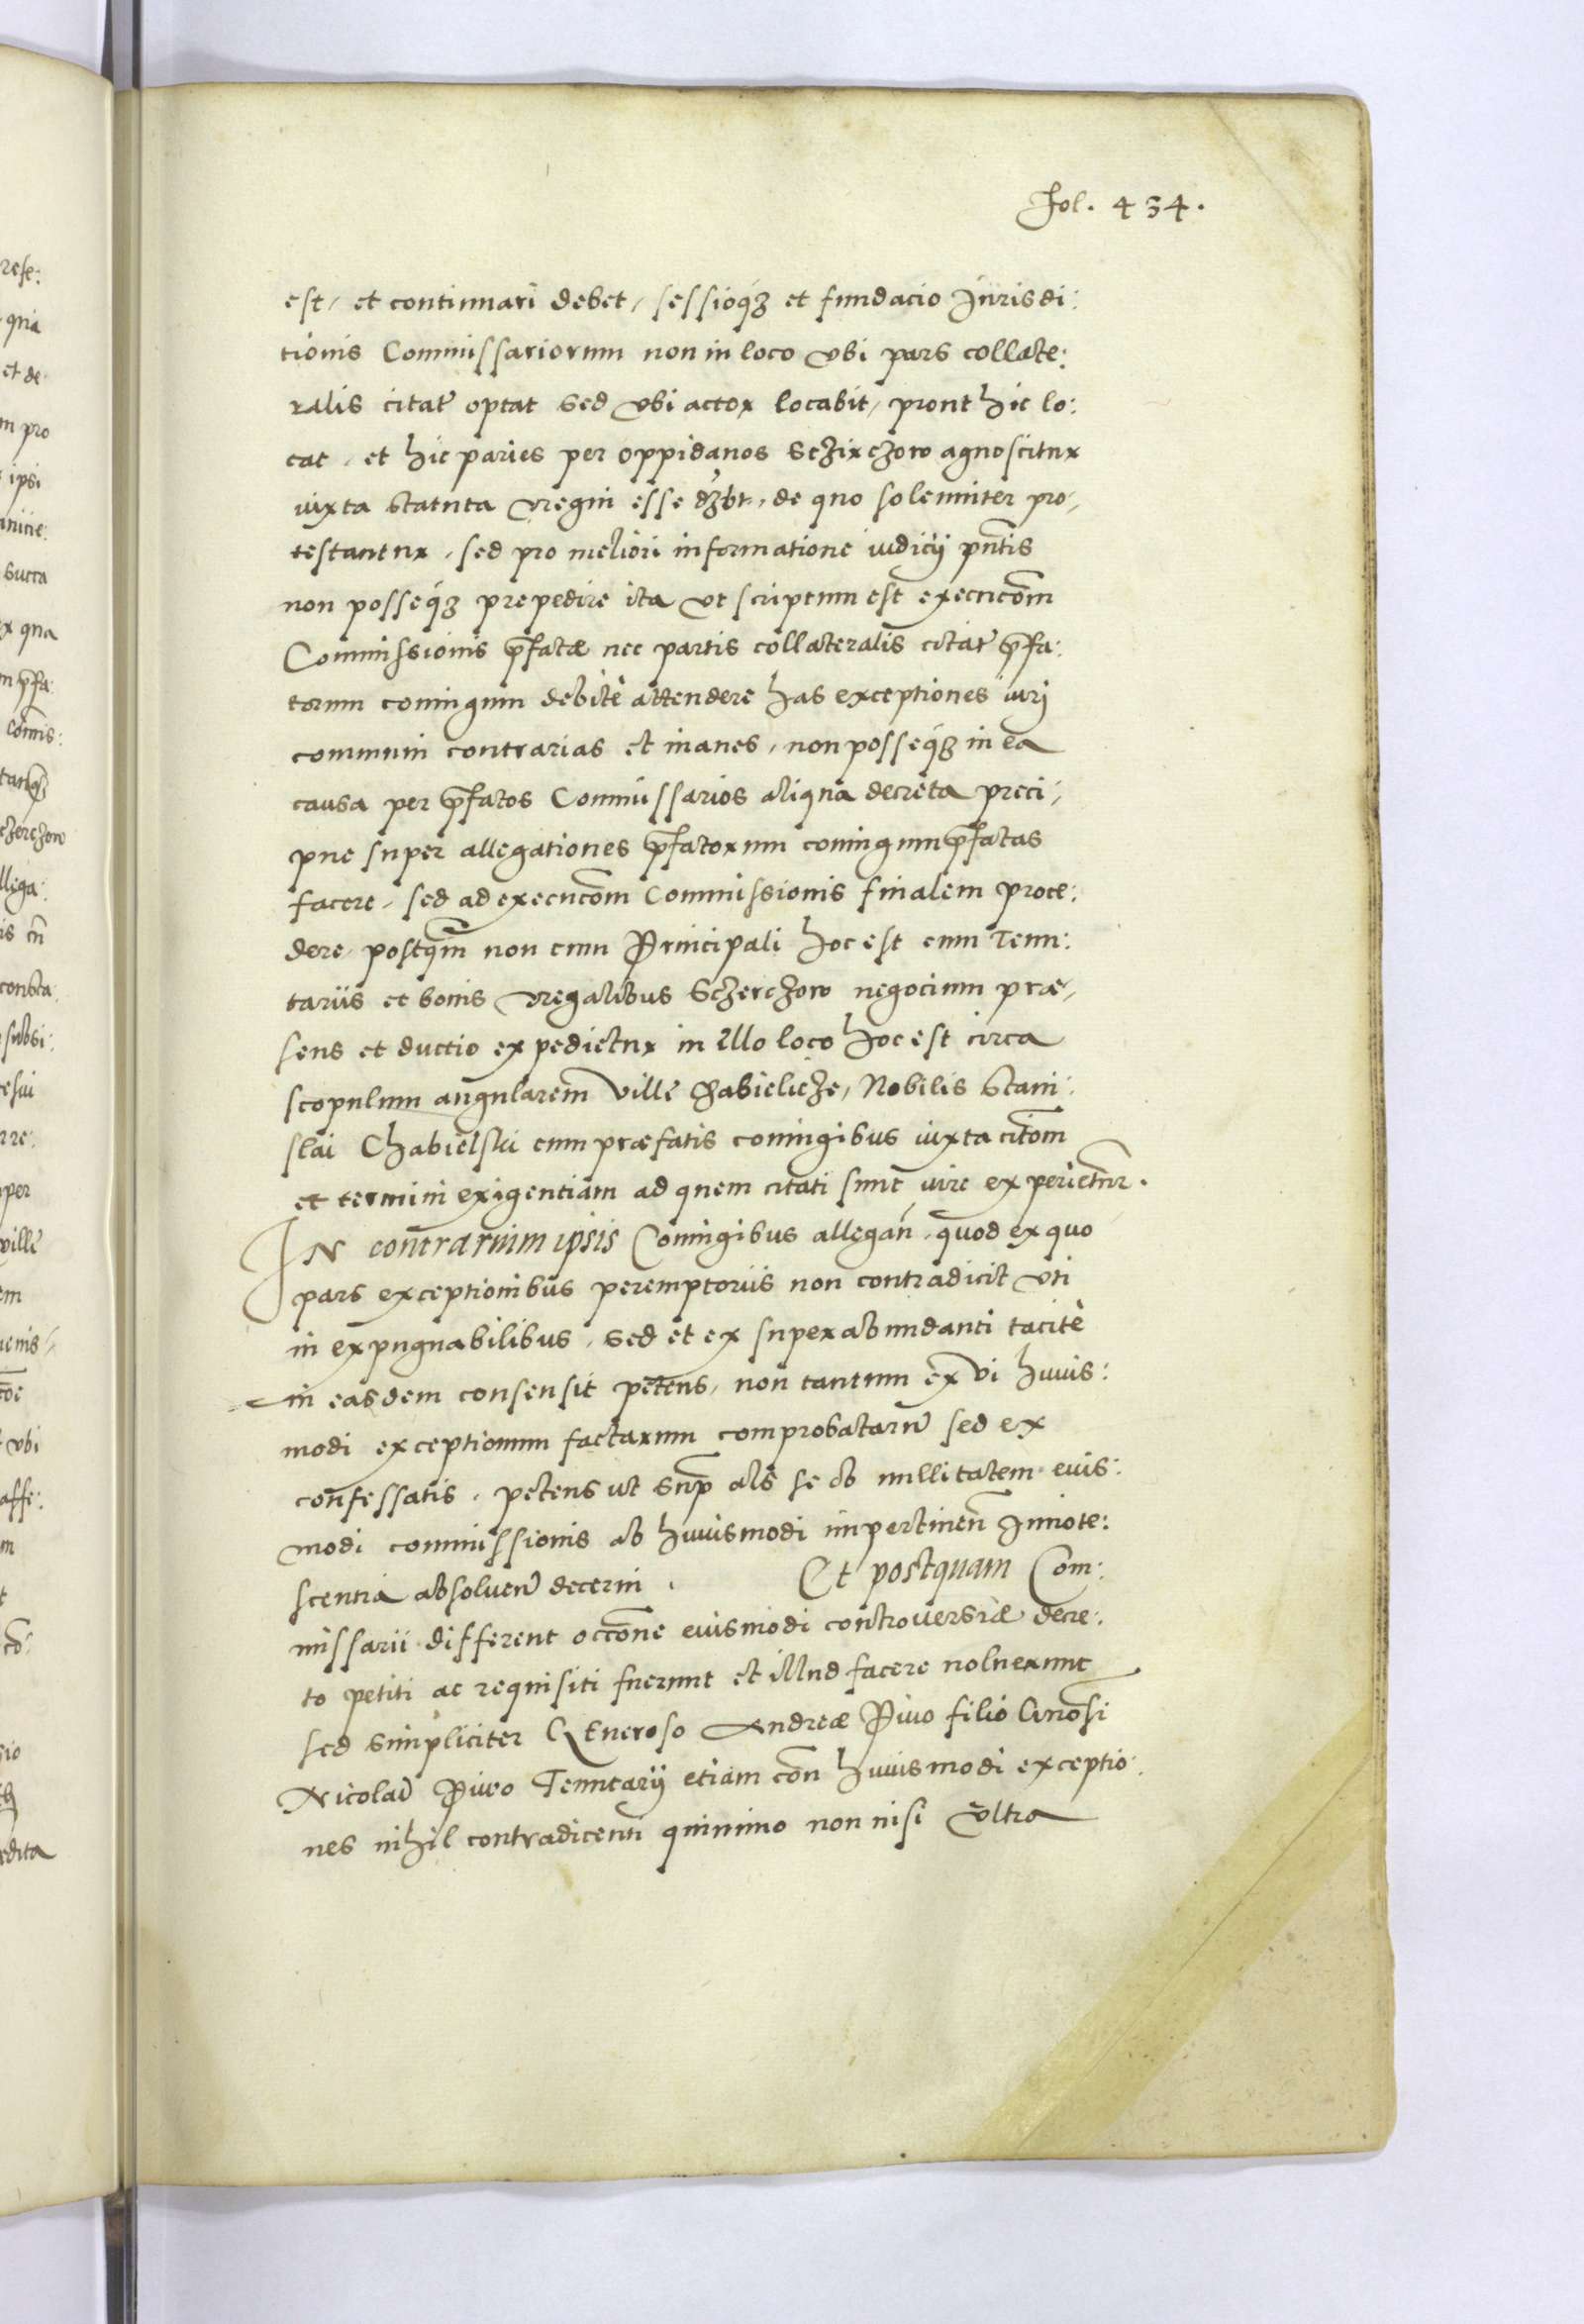 Fol. 434.
est, et continuari debet, sessioq̃ et fundacio Jurisdi:
tionis Commissariorum non in loco vbi pars collate:
ralis citat̃ optat sed vbi actor locabit, prout hic lo:
cat, et hic paries per oppidanos Sczirczow agnoscitur
iuxta statuta Regni esse dꝫbt, de quo solenniter pro,
testantur, sed pro meliori informatione iudicÿ pñtis
non posseq̃ prepedire ita vt scriptum est execucõm
Commissionis p̃fatæ nec partis collateralis citat̃ p̃fa:
torum coniugum debitè attendere has exceptiones iurj
communi contrarias et inanes, non posseq̃ in ea
causa per p̃fatos Commissarios aliqua decreta preci,
pue super allegationes p̃fatorum coniugum p̃fatas
facere, sed ad execucõm Commissionis finalem proce:
dere, postq̃m non cum Principali hoc est cum Tenu:
tariis et bonis Regalibus Sczerczow negocium præ,
sens et ductio expedietur in illo loco hoc est circa
scopulum angularem Ville Chabielicze, Nobilis Stani:
slai Chabielski cum præfatis coniugibus iuxta citõm
et termini exigentiam ad quem citati sunt iure experientur.
IN contrarium ipsis Coniugibus allegañ, quod ex quo
pars exceptionibus peremptoriis non contradicit vti
in expugnabilibus, sed et ex superabundanti tacitè
in easdem consensit petens, non tantum ex vi huius:
modi exceptionum factarum comprobatarũ sed ex
confessatis, petens ut sup̃ als se ob nullitatem euis:
modi commissionis ab huiusmodi impertineñ Innote:
scentia absolueñ decerni. Et postquam Com:
missarii different occõne eiusmodi controuersiæ decre:
to petiti ac requisiti fuerunt et illud facere noluerunt
sed simpliciter GEneroso Andreæ Piwo filio Gnõsi
Nicolai Piwo Tenutarÿ etiam coñ huiusmodi exceptio:
nes nihil contradicenti quinimo non nisi Vltra